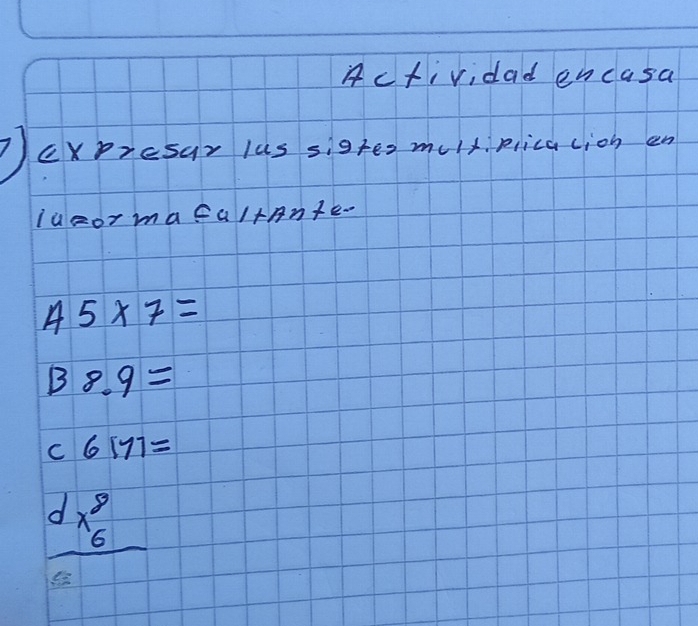 Actividad en casa
1) expresar las sigtes multiplicacion en
la forma faltante
A 5 x 7 =
B 8.9 =
c 6[7] =
d x 8
6